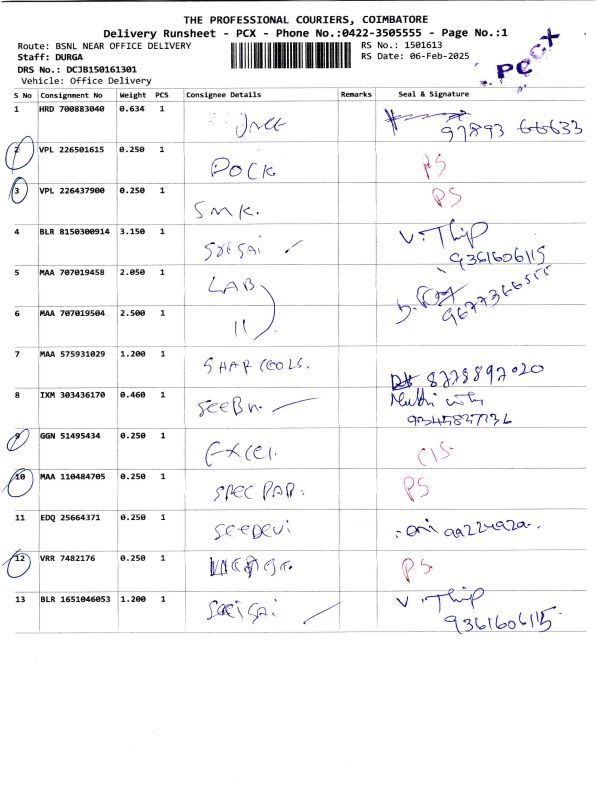 THE PROFESSIONAL COURIERS, COIMBATORE
Delivery Runsheet - PCX - Phone No.:0422-3505555 - Page No.:1
Route: BSNL NEAR OFFICE DELIVERY
RS No.: 1501613
Staff: DURGA
RS Date: 06-Feb-2025
DRS No.: DCJB150161301
Vehicle: Office Delivery
PCX
S No Consignment No Weight PCS Consignee Details Remarks Seal & Signature
1 HRD 700883040 0.634 1 97893 66633
2 VPL 226501615 0.250 1 POCK. PS
3 VPL 226437900 0.250 1 SMK. PS
4 BLR 8150300914 3.150 1 V. Thip
9361606115
5 MAA 707019458 2.050 1 LAB
9677366555
6 MAA 707019504 2.500 1 11
7 MAA 575931029 1.200 1
8 IXM 303436170 0.460 1
9 GGN 51495434 0.250 1 EXCel. C1S.
10 MAA 110484705 0.250 1 SPEC PAP. PS
11 EDQ 25664371 0.250 1 SEEDEVI
12 VRR 7482176 0.250 1 PS.
13 BLR 1651046053 1.200 1 V. Thip
9361606115